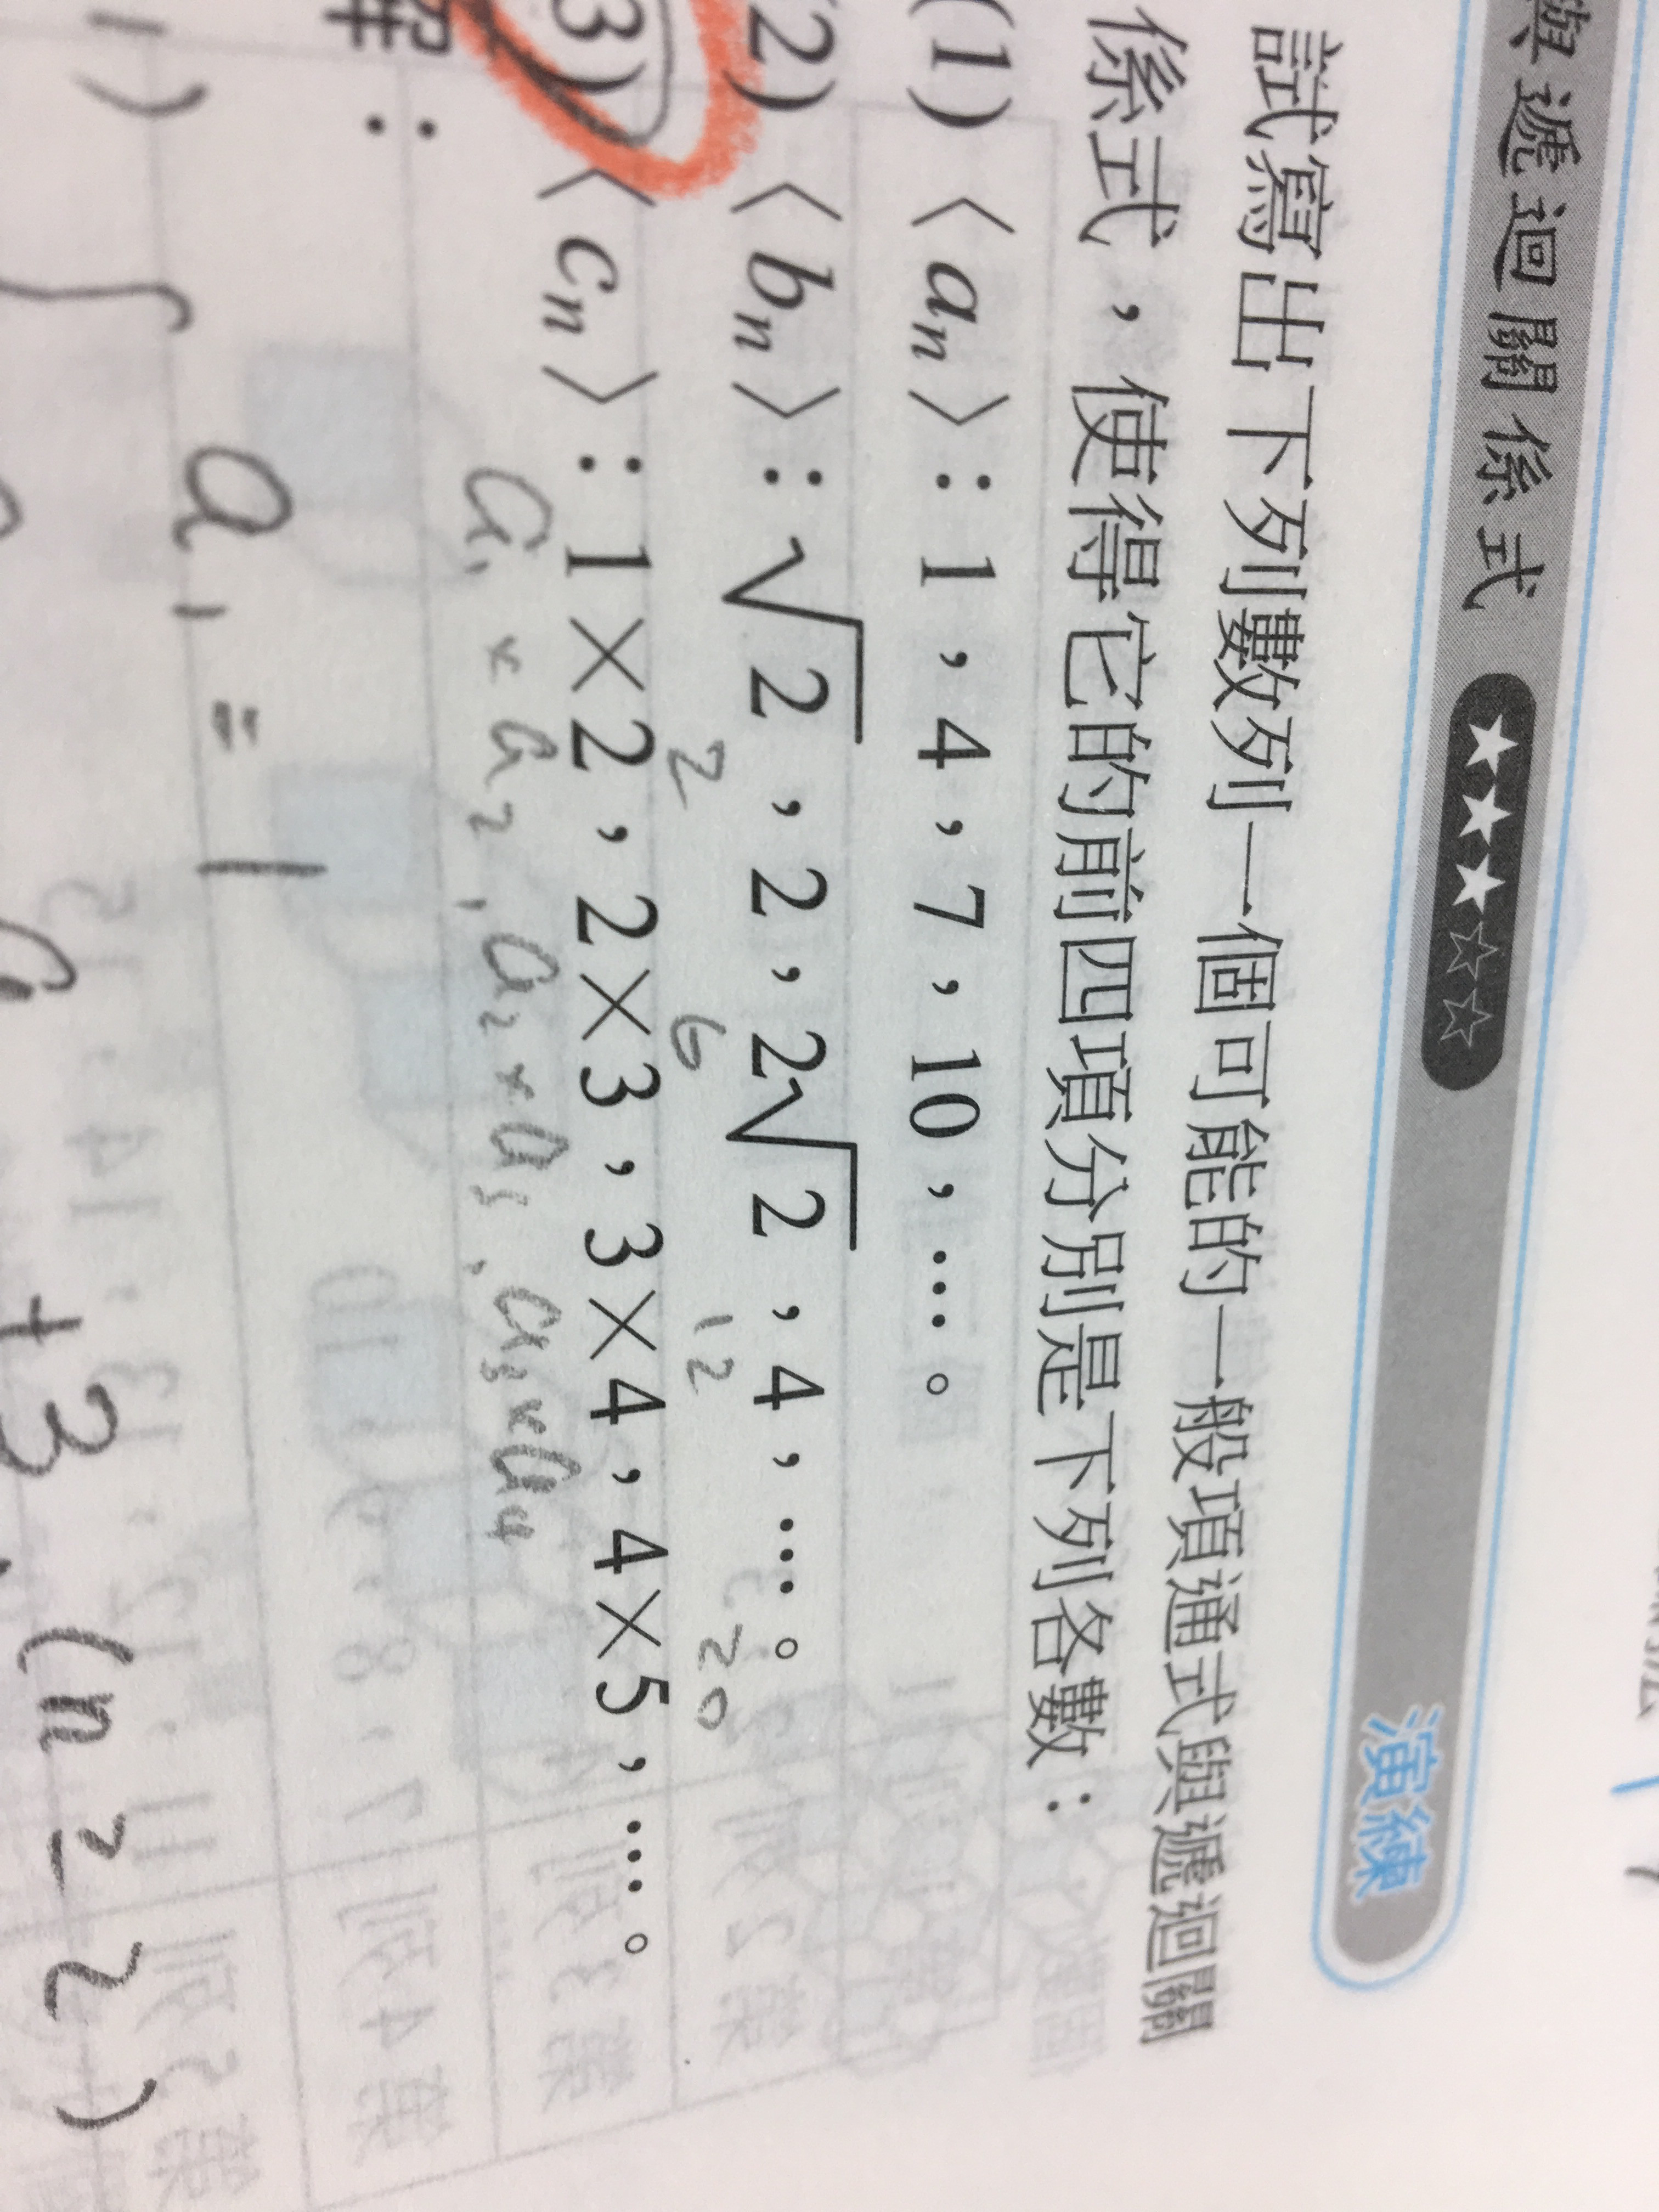 與遞迴關係式 ★★★☆☆ 演練
試寫出下列數列一個可能的一般項通式與遞迴關
係式，使得它的前四項分別是下列各數：
(1)〈aₙ〉：1，4，7，10，…。
(2)〈bₙ〉：√2，2，2√2，4，…。
2 6 12 20
(3)〈cₙ〉：1×2，2×3，3×4，4×5，…。
a₁×a₂, a₂×a₃, a₃×a₄
解：
1) a₁=1
+3, (n≥2)